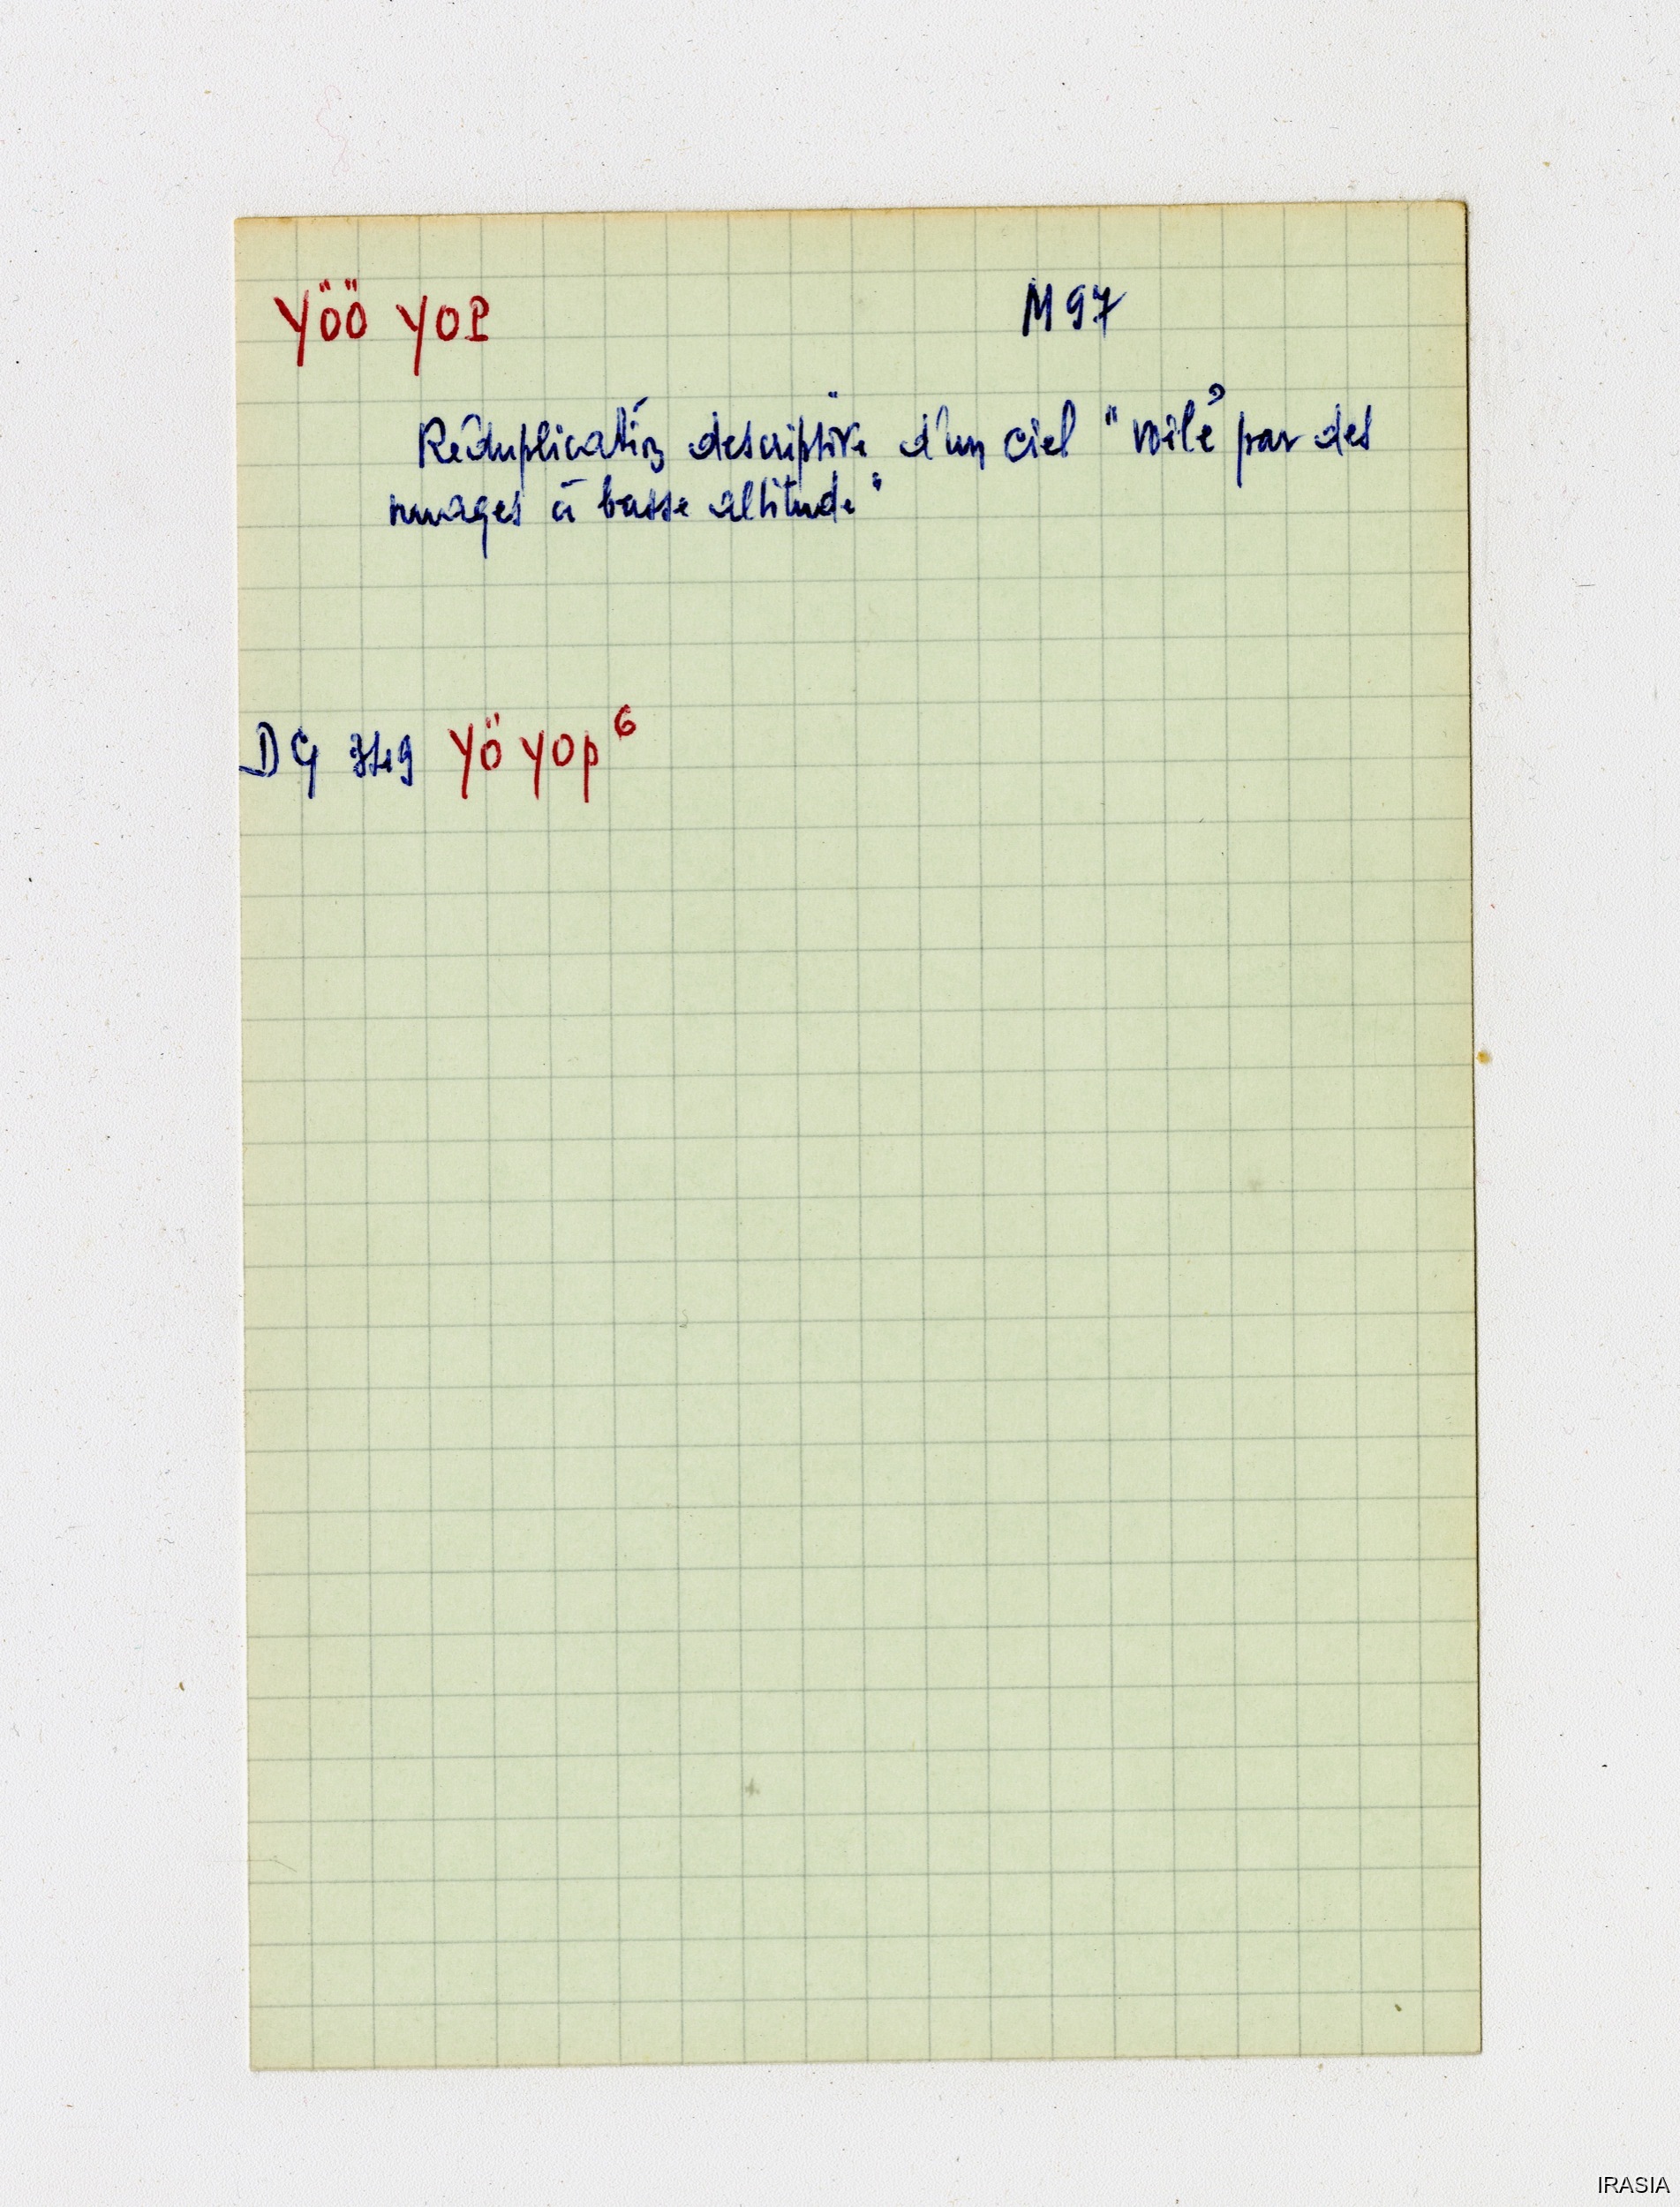 YÖÖ YOP M 97
Réduplication descriptive d'un ciel "voilé par des
nuages à basse altitude"
DG 349 YÖ YOP⁶
IRASIA